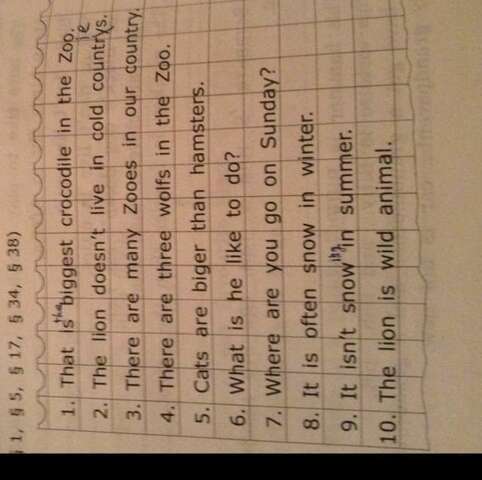 § 1, § 5, § 17, § 34, § 38)
1. That is the biggest crocodile in the Zoo.
ie
2. The lion doesn't live in cold countrys.
3. There are many Zooes in our country.
4. There are three wolfs in the Zoo.
5. Cats are biger than hamsters.
6. What is he like to do?
7. Where are you go on Sunday?
8. It is often snow in winter.
9. It isn't snow ing in summer.
10. The lion is wild animal.